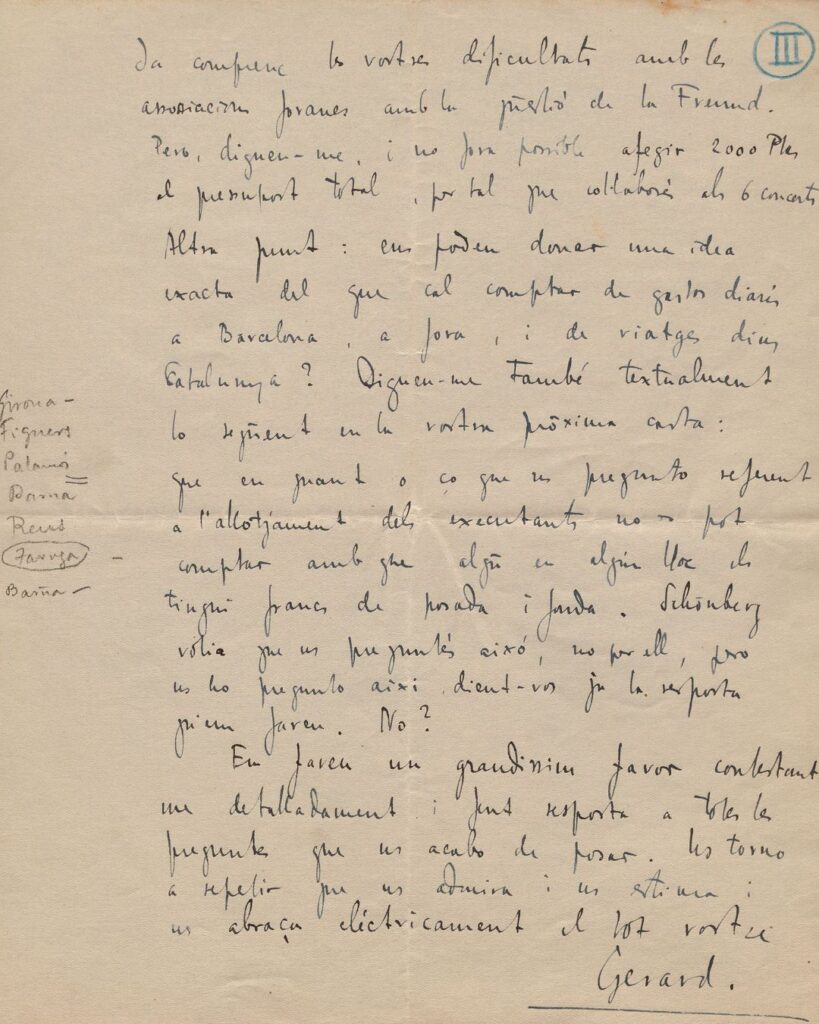 III
Ja comprenc les vostres dificultats amb les
associacions foranes amb la qüestió de la Freund.
Pero, digueu-me, i no fora possible afegir 2000 Ptes
al pressupost total, per tal que col·laborés als 6 concerts
Altra punt : ens poden donar una idea
exacta del que cal comptar de gastos diaris
a Barcelona, a fora, i de viatges dins
Catalunya ? Digueu-me També textualment
lo següent en la vostra pròxima carta :
que en quant a ço que us pregunto referent
a l'allotjament dels executants no es pot
comptar amb que algú en algún lloc els
tingui francs de posada i fonda. Schönberg
volia que us preguntés aixó, no per ell, pero
us ho pregunto aixi dient-vos ja la resposta
que em fareu. No ?
Em fareu un grandissim favor contestant
me detalladament i fent resposta a totes les
preguntes que us acabo de posar. Us torno
a repetir que us admira i us estima i
us abraça eléctricament el tot vostre
Gerard.
Girona -
Figueres
Palamós
Barna
Reus
Barna -